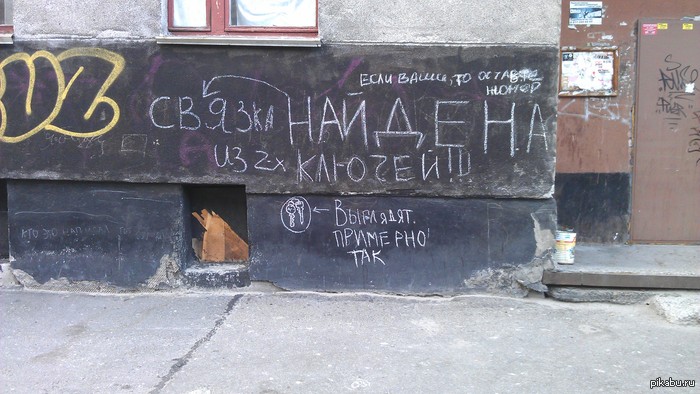 ЕСЛИ ВАШИ, ТО ОСТАВТЕ
НОМЕР
СВЯЗКА НАЙДЕНА
ИЗ 2х КЛЮЧЕЙ!!!
ВЫГЛЯДЯТ
ПРИМЕРНО!
ТАК
КТО ЭТО
pikabu.ru